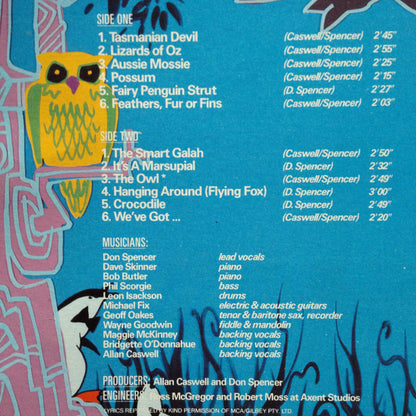 SIDE ONE
1. Tasmanian Devil (Caswell/Spencer) 2'45"
2. Lizards of Oz (Caswell/Spencer) 2'55"
3. Aussie Mossie (Caswell/Spencer) 2'25"
4. Possum (Caswell/Spencer) 2'15"
5. Fairy Penguin Strut (D. Spencer) 2'27"
6. Feathers, Fur or Fins (Caswell/Spencer) 2'03"
SIDE TWO
1. The Smart Galah (Caswell/Spencer) 2'50"
2. It's A Marsupial (D. Spencer) 2'32"
3. The Owl * (Caswell/Spencer) 2'49"
4. Hanging Around (Flying Fox) (D. Spencer) 3'00"
5. Crocodile (D. Spencer) 2'49"
6. We've Got ... (Caswell/Spencer) 2'20"
MUSICIANS:
Don Spencer lead vocals
Dave Skinner piano
Bob Butler piano
Phil Scorgie bass
Leon Isackson drums
Michael Fix electric & acoustic guitars
Geoff Oakes tenor & baritone sax, recorder
Wayne Goodwin fiddle & mandolin
Maggie McKinney backing vocals
Bridgette O'Donnahue backing vocals
Allan Caswell backing vocals
PRODUCERS: Allan Caswell and Don Spencer
ENGINEERS: Ross McGregor and Robert Moss at Axent Studios
LYRICS REPRINTED BY KIND PERMISSION OF MCA/GILBEY PTY LTD.